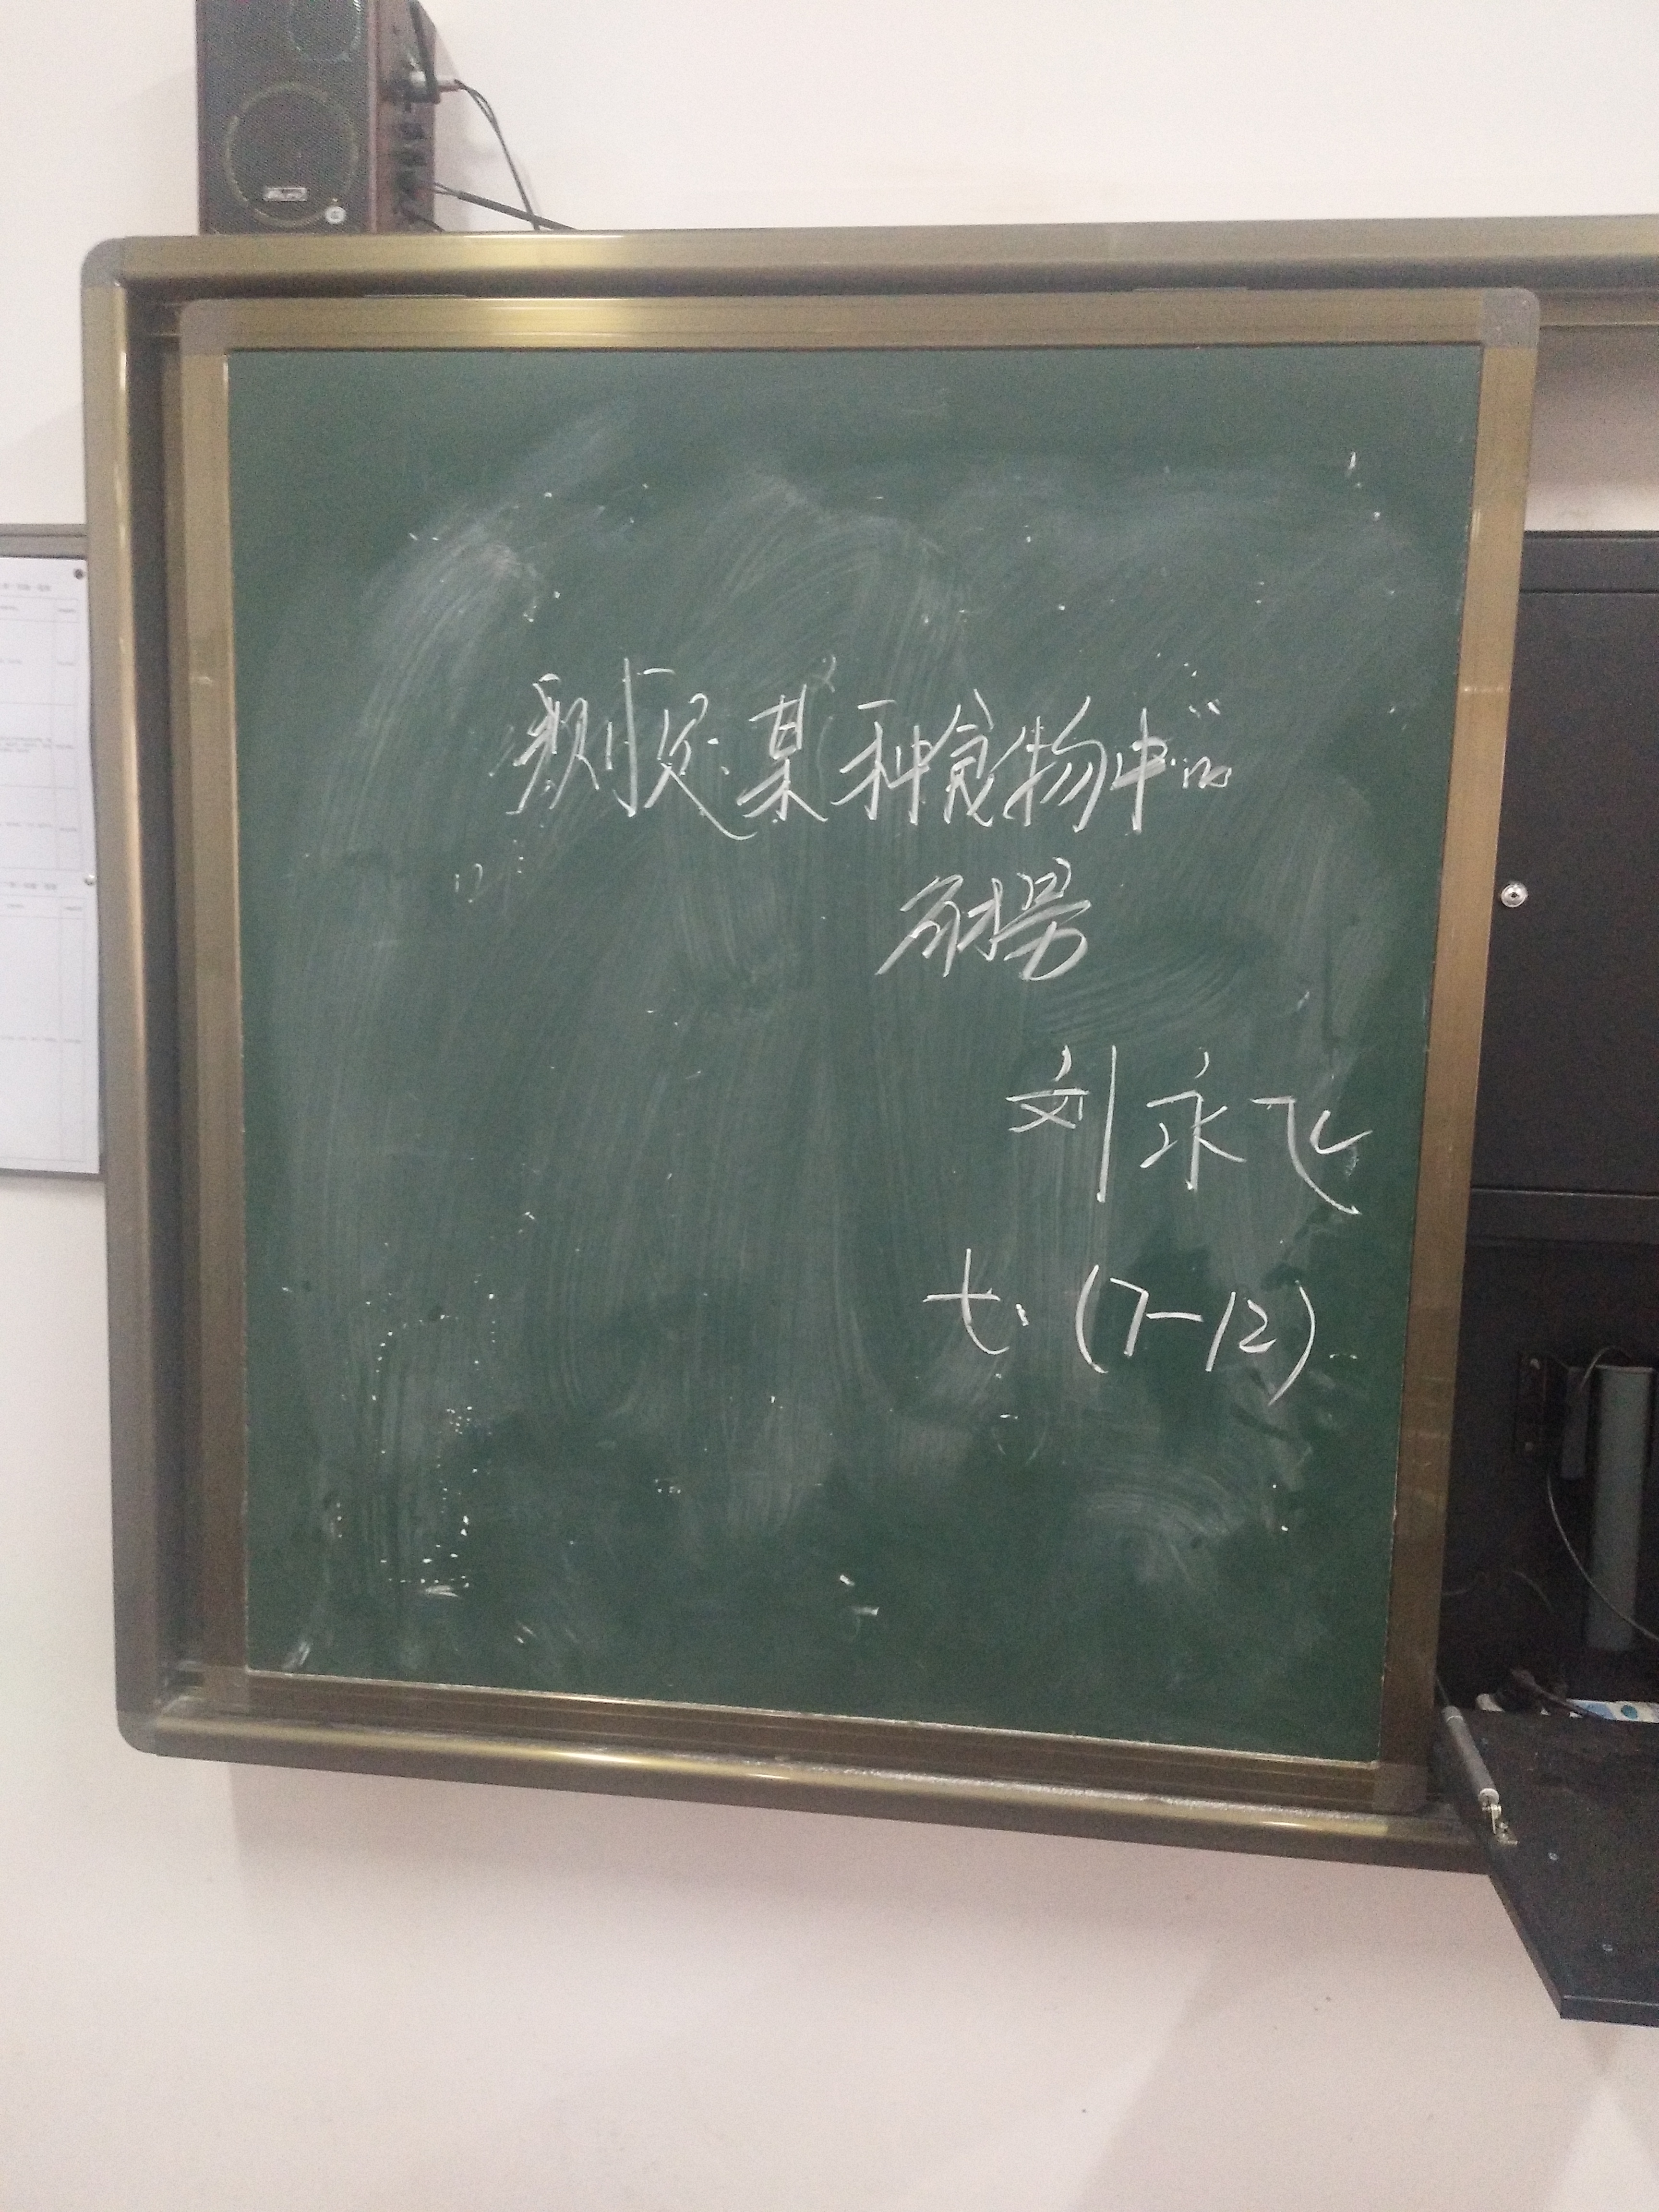 测定某种食物中的
能量
刘永飞
七.(7-12)